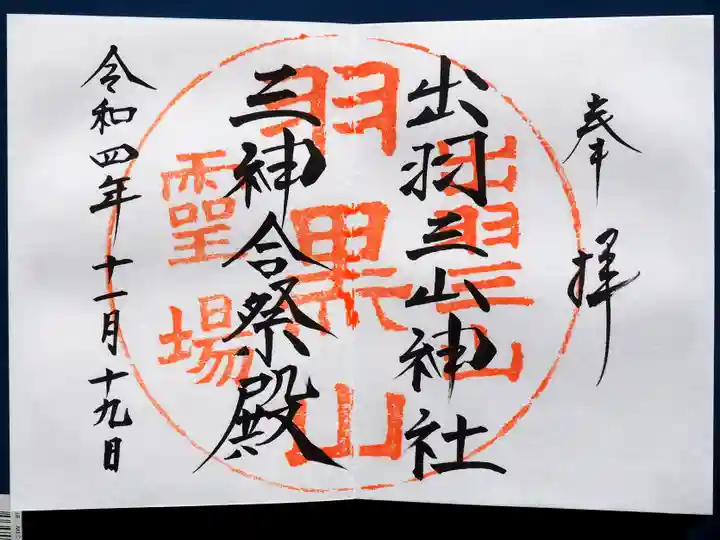 奉拝
出羽三山神社
三神合祭殿
令和四年十一月十九日
出羽三山
羽黒山
霊場